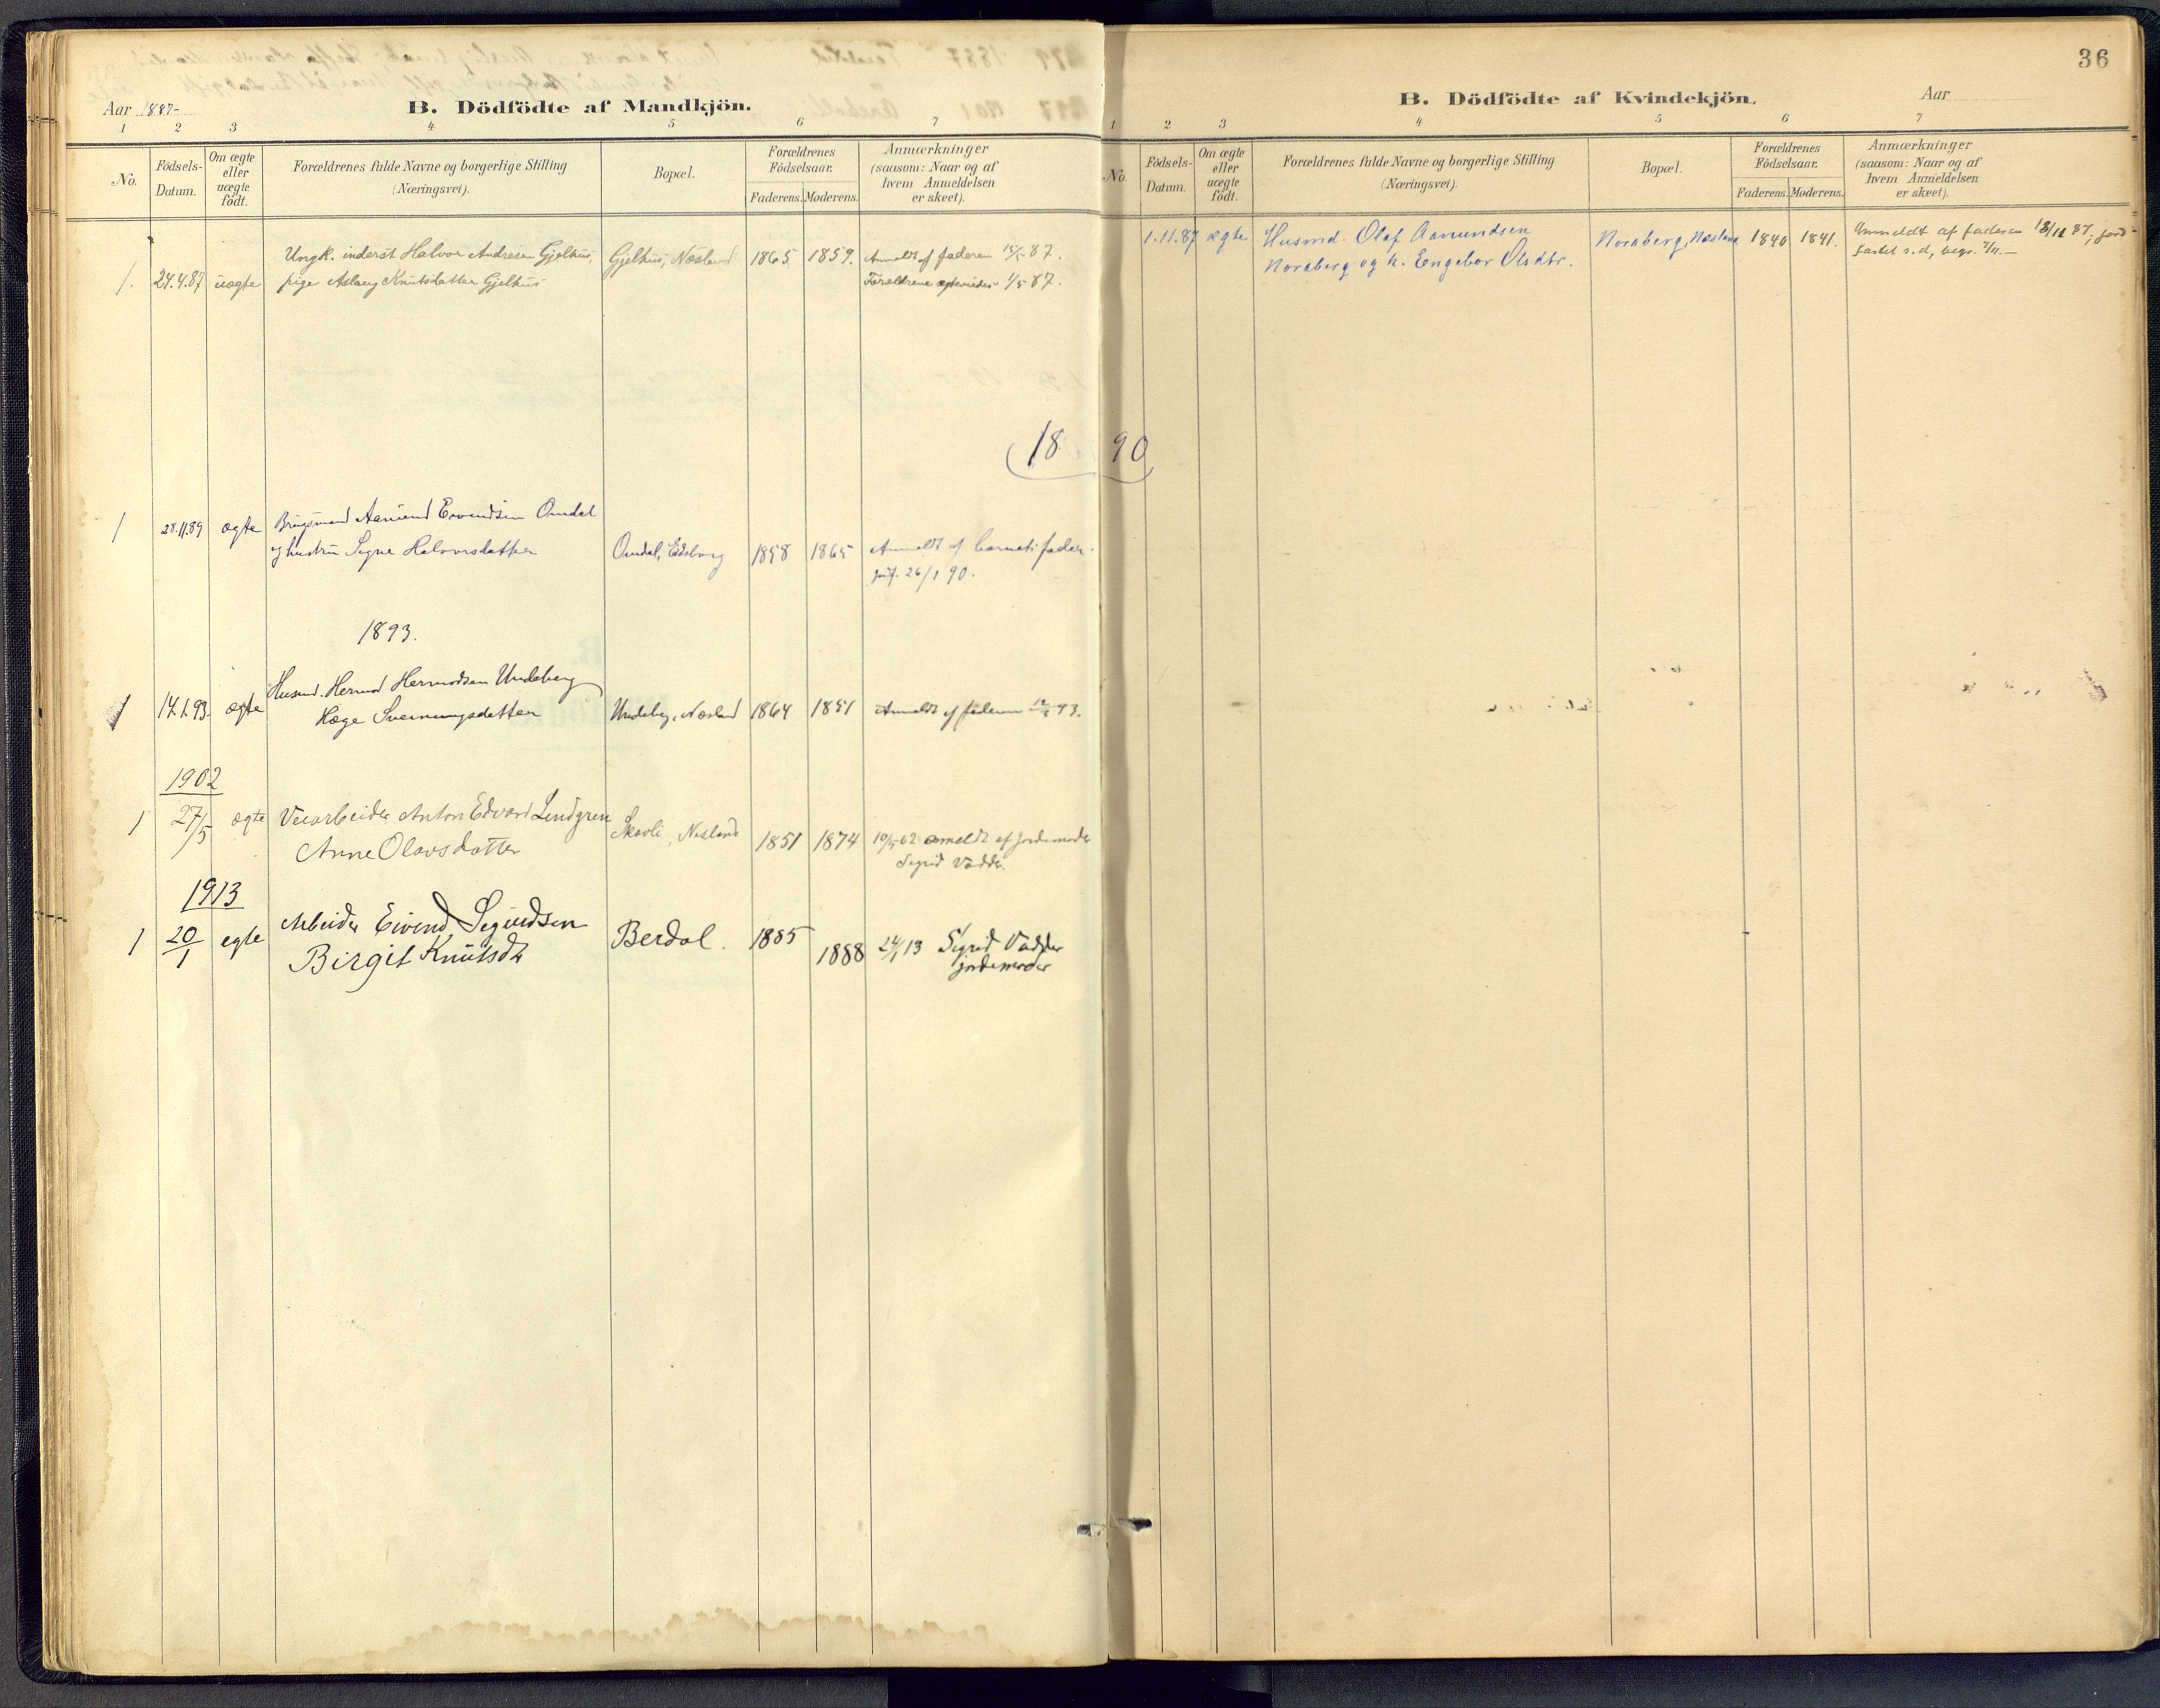 Aar 1887-
B. Dödfödte af Mandkjön.
1 2 3 4 5 6 7
No.
Födsels-Datum.
Om ægte eller uægte födt.
Forældrenes fulde Navne og borgerlige Stilling (Næringsvei).
Bopæl.
Forældrenes Födselsaar.
Faderens. Moderens.
Anmærkninger (saasom: Naar og af hvem Anmeldelsen er skeet).
Ungk. inderst Halvor Andresen Gjelhus, Gjelhus, Næsland 1865. 1859. Anmeldt af faderen 15/5 87.
1. 24.4.87 uægte pige Aslaug Knutsdatter Gjelhus Forældrene 1/5 87.
18 90
1 28.11.89 ægte Brugsmand Aamund Eivindsen Omdal
og hustru Signe Halvorsdatter Omdal, Eidsborg 1858 1865 Anmeldt af barnets fader
26/1 90.
1893.
Husmd. Hermod Hermodsen Undeberg
1 14.1.93. ægte Hæge Sveinungsdatter Undebg, Næsland 1864 1851 Anmeldt af faderen 12/3 93.
1902
1 27/5 ægte Veiarbeider Anton Edvard Lindgren Skavli, Nesland
Anne Olavsdatter 1851 1874 10/5 02 anmeldt af jordemoder
Sigrid Vadder.
1913
1 20/1 egte Arbeider Eivind Sigurdsen Berdal. 1885
Birgit Knutsdtr 1888 24/1 13 Sigrid Vadder
jordemoder
36
B. Dödfödte af Kvindekjön.
Aar
1 2 3 4 5 6 7
No.
Födsels-Datum.
Om ægte eller uægte födt.
Forældrenes fulde Navne og borgerlige Stilling (Næringsvei).
Bopæl.
Forældrenes Födselsaar.
Faderens. Moderens.
Anmærkninger (saasom: Naar og af hvem Anmeldelsen er skeet).
1.11.87 ægte Husmd. Olaf Aamundsen Noraberg, Næsland 1840 1841. Anmeldt af faderen 18/12 87, jord-
Noraberg og h. Engebor Olsdtr. fæstet s.d, begr. 7/11.—